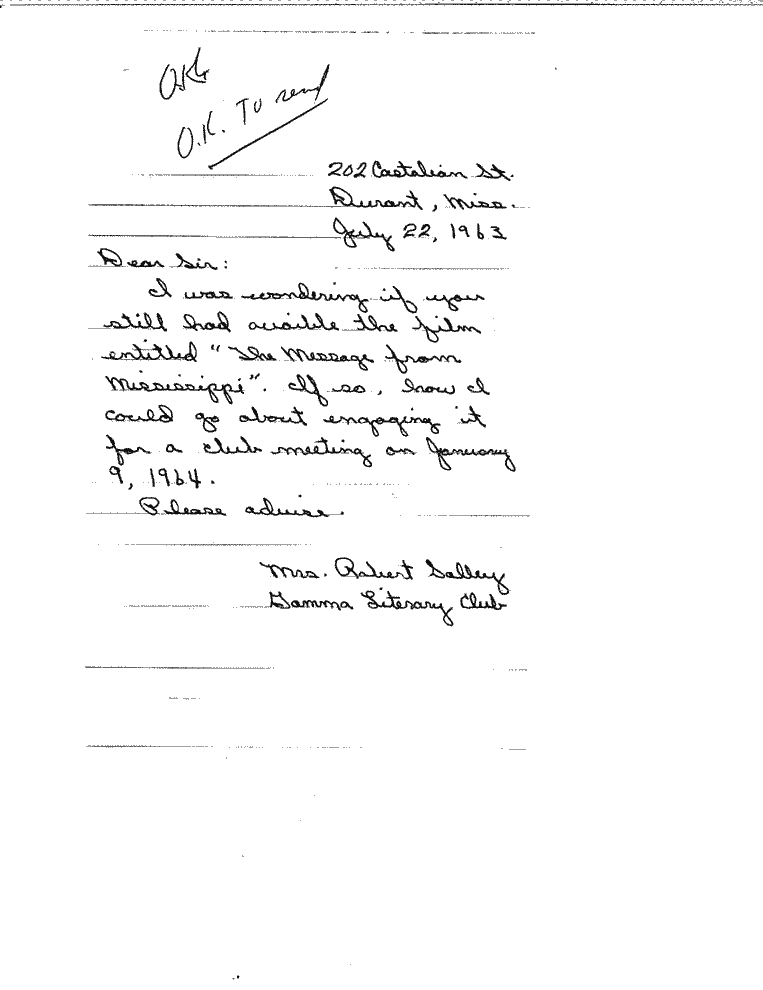 O.K. To send
202 Castalian St.
Durant, Miss.
July 22, 1963
Dear Sir:
I was wondering if you
still had availble the film
entitled "The Message from
Mississippi". If so, how I
could go about engaging it
for a club meeting on January
9, 1964.
Please advise.
Mrs. Robert Salley
Gamma Literary Club